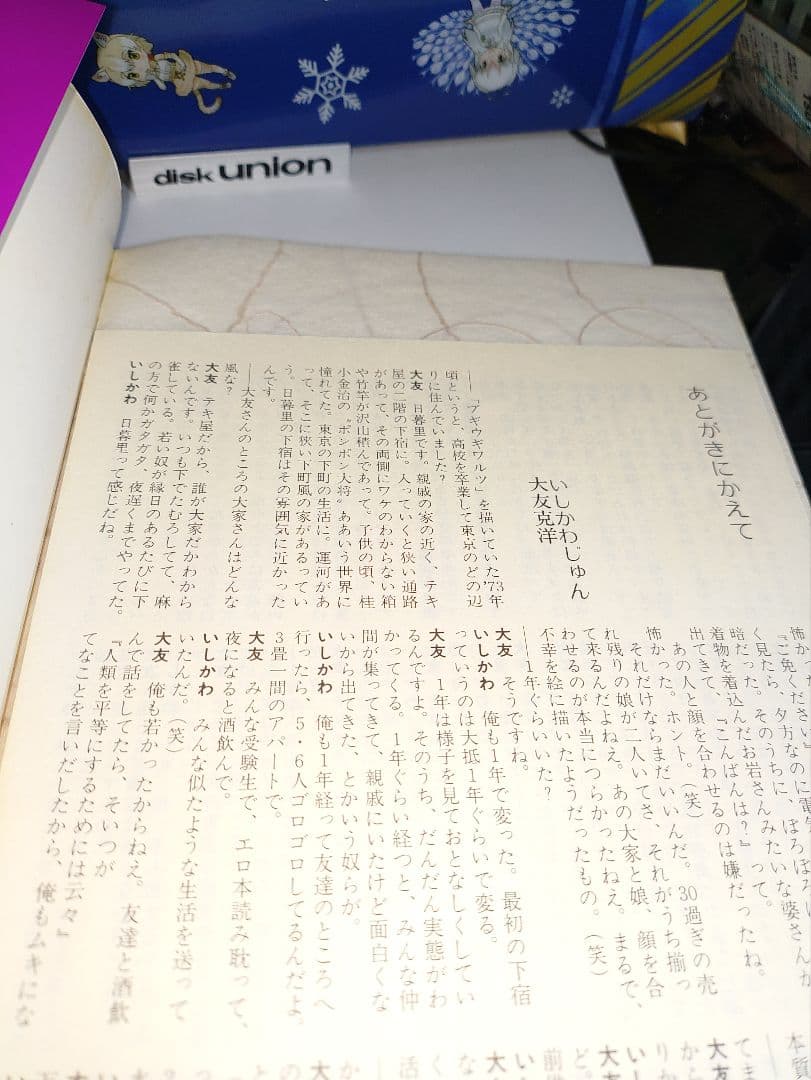 disk union
あとがきにかえて
いしかわじゅん
大友克洋
――「ブギウギワルツ」を描いていた'73年
頃というと、高校を卒業して東京のどの辺
りに住んでいました?
大友 日暮里です。親戚の家の近く、テキ
屋の二階の下宿に。入っていくと狭い通路
があって、その両側にワケのわからない箱
や竹竿が沢山積んであって。子供の頃、桂
小金治の〝ポンポン大将〟ああいう世界に
憧れてた。東京の下町の生活に。運河があ
って、そこに狭い下町風の家があるってい
う。日暮里の下宿はその雰囲気に近かった
んです。
――大友さんのところの大家さんはどんな
風な?
大友 テキ屋だから、誰が大家だかわから
ないんです。いつも下でたむろしてて、麻
雀している。若い奴が縁日のあるたびに下
の方で何かガタガタ、夜遅くまでやってた。
いしかわ 日暮里って感じだね。
『ご免ください』
く見たら、そのうちに、ぼろぼろ
暗だった。そのお岩さんみたいな婆さんが
着物を着込んだ
出てきて、『こんばんは?』って。
あの人と顔を合わせるのは嫌だったね。
怖かった。ホント。(笑)
それだけならまだいいんだ。30過ぎの売
れ残りの娘が二人いてさ、それがうち揃っ
て来るんだよねえ。あの大家と娘、顔を合
わせるのが本当につらかったねえ。まるで、
不幸を絵に描いたようだったもの。(笑)
――1年ぐらいいた?
大友 そうですね。
いしかわ 俺も1年で変った。最初の下宿
っていうのは大抵1年ぐらいで変る。
大友 1年は様子を見ておとなしくしてい
るんですよ。そのうち、だんだん実態がわ
かってくる。1年ぐらい経つと、みんな仲
間が集ってきて、親戚にいたけど面白くな
いから出てきた、とかいう奴らが。
いしかわ 俺も1年経って友達のところへ
行ったら、5・6人ゴロゴロしてるんだよ、
3畳一間のアパートで。
大友 みんな受験生で、エロ本読み耽って、
夜になると酒飲んで。
いしかわ みんな似たような生活を送って
いたんだ。(笑)
大友 俺も若かったからねえ。友達と酒飲
んで話をしてたら、そいつが
『人類を平等にするためには云々』
てなことを言いだしたから、俺もムキにな